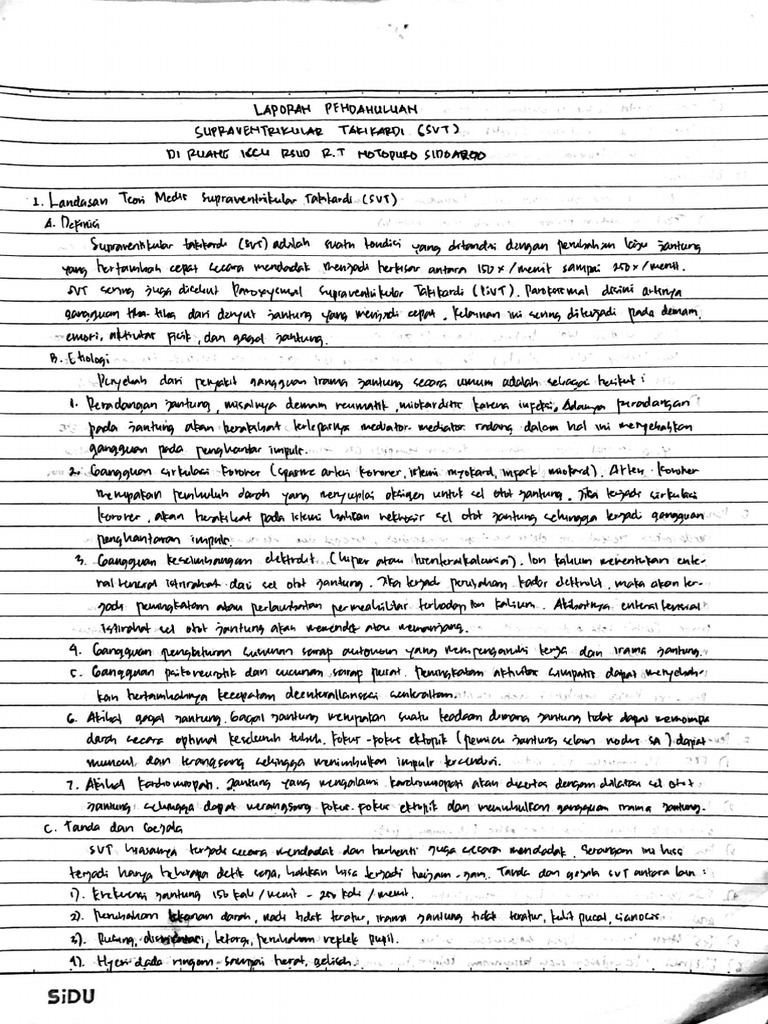 LAPORAN PENDAHULUAN
SUPRAVENTRIKULAR TAKIKARDI (SVT)
DI RUANG ICCU RSUD R.T NOTOPURO SIDOARJO
1. Landasan Teori Medis Supraventrikular Takikardi (SVT)
A. Definisi
Supraventrikular takikardi (SVT) adalah suatu kondisi yang ditandai dengan perubahan laju jantung
yang bertambah cepat secara mendadak menjadi berkisar antara 150 x/menit sampai 250 x/menit.
SVT sering juga disebut Paroxysmal Supraventrikular Takikardi (PSVT). Paroksismal disini artinya
gangguan tiba-tiba dari denyut jantung yang menjadi cepat. Kelainan ini sering terjadi pada demam,
emosi, aktivitas fisik, dan gagal jantung.
B. Etiologi
Penyebab dari penyakit gangguan irama jantung secara umum adalah sebagai berikut :
1. Peradangan jantung, misalnya demam reumatik, miokarditis karena infeksi, Adanya peradangan
pada jantung akan berakibat terlepasnya mediator-mediator radang dalam hal ini menyebabkan
gangguan pada penghantar impuls.
2. Gangguan sirkulasi koroner (spasme arteri koroner, iskemi myokard, infark miokard). Arteri koroner
merupakan pembuluh darah yang menyuplai oksigen untuk sel otot jantung. Jika terjadi sirkulasi
koroner, akan berakibat pada iskemi bahkan nekrosis sel otot jantung sehingga terjadi gangguan
penghantaran impuls.
3. Gangguan keseimbangan elektrolit (hiper atau . Ion kalium menentukan
istirahat dari sel otot jantung. Jika terjadi perubahan kadar elektrolit, maka akan ter-
jadi peningkatan atau perlambatan permeabilitas terhadap Ion kalium. Akibatnya
istirahat sel otot jantung akan memendek atau memanjang.
4. Gangguan pengaturan susunan sarap autonom yang mempengaruhi kerja dan irama jantung.
5. Gangguan psikoneurotik dan susunan sarap pusat. Peningkatan aktivitas simpatis dapat menyebab-
kan bertambahnya kecepatan
6. Akibat gagal jantung. Gagal jantung merupakan suatu keadaan dimana jantung tidak dapat memompa
darah secara optimal keseluruh tubuh. Fokus-fokus ektopik (pemicu jantung selain nodus SA) dapat
muncul dan terangsang sehingga menimbulkan impuls tersendiri.
7. Akibat kardiomiopati. Jantung yang mengalami kardiomiopati akan disertai dengan dilatasi sel otot
jantung sehingga dapat merangsang fokus-fokus ektopik dan menimbulkan gangguan irama jantung.
C. Tanda dan Gejala
SVT biasanya terjadi secara mendadak dan berhenti juga secara mendadak. Serangan ini bisa
terjadi hanya beberapa detik saja, bahkan bisa terjadi berjam-jam. Tanda dan gejala SVT antara lain :
1). Frekuensi jantung 150 kali/menit - 250 kali/menit.
2). Perubahan tekanan darah, nadi tidak teratur, irama jantung tidak teratur, kulit pucat, sianosis.
3). Pusing, disorientasi, letargi, perubahan reflek pupil.
4). Nyeri dada ringan sampai berat, gelisah.
SiDU